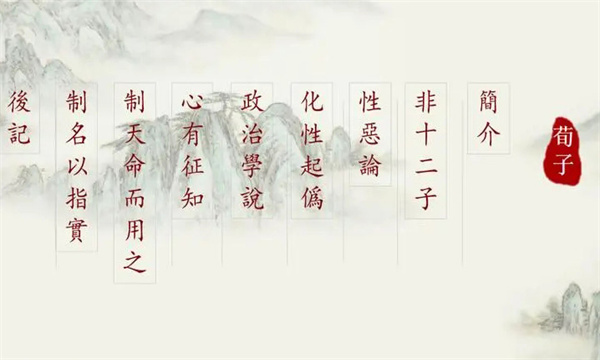 荀子
簡介
非十二子
性惡論
化性起僞
政治學說
心有征知
制天命而用之
制名以指實
後記